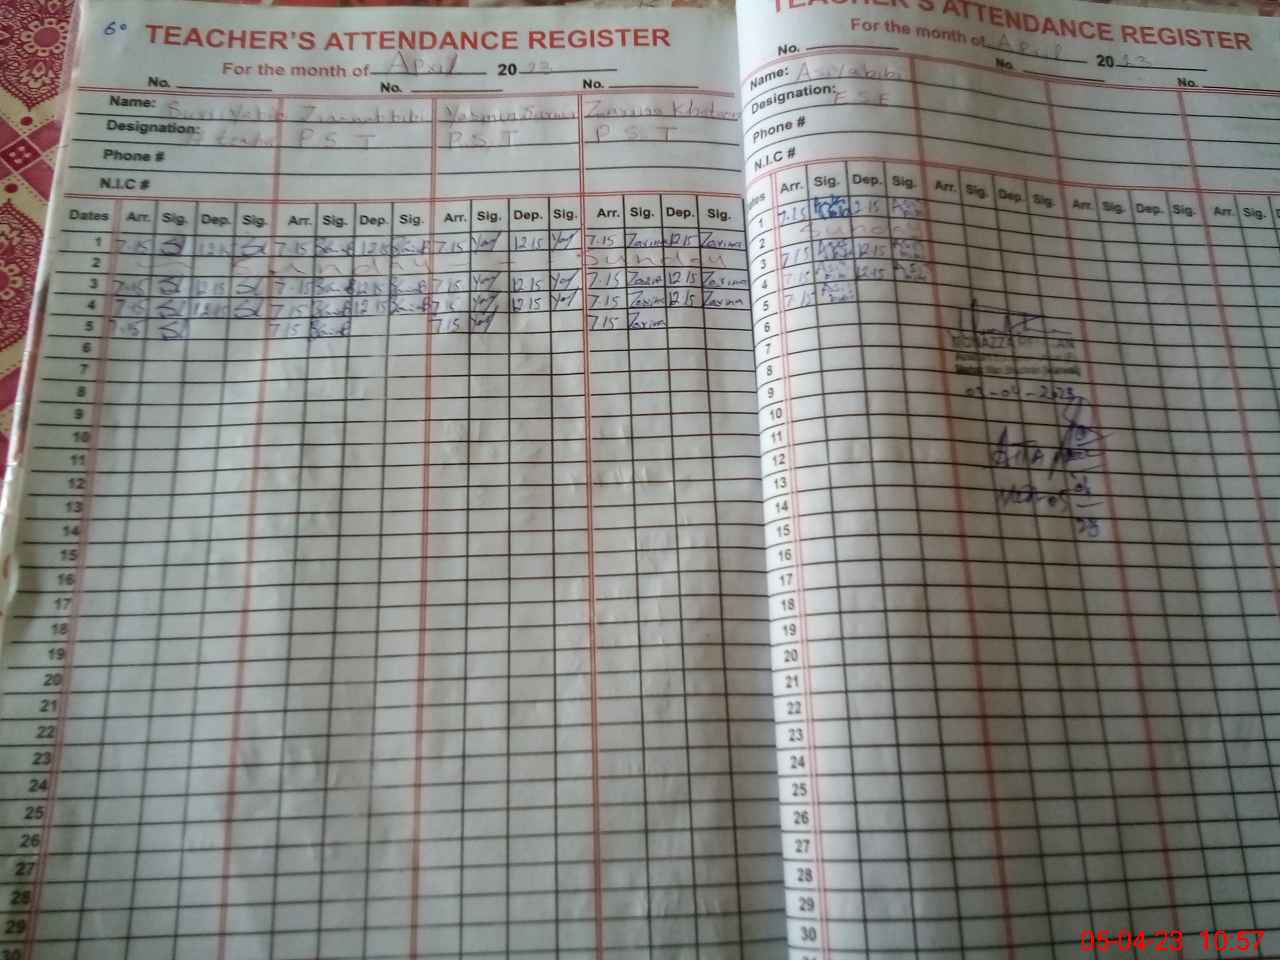 6°
TEACHER'S ATTENDANCE REGISTER
For the month of April 2023
No. No. No.
Name: Zeenat bibi Yasmin Zarina Khatoon
Designation: P.S.T P.S.T P.S.T
Phone #
N.I.C #
Dates Arr. Sig. Dep. Sig. Arr. Sig. Dep. Sig. Arr. Sig. Dep. Sig. Arr. Sig. Dep. Sig.
1 7.15 12.15 7.15 12.15 7.15 Yas 12.15 Yas 7.15 Zarina 12.15 Zarina
2 Sunday Sunday
3 7.15 12.15 7.15 12.15 7.15 Yas 12.15 Yas 7.15 Zarina 12.15 Zarina
4 7.15 12.15 7.15 12.15 7.15 Yas 12.15 Yas 7.15 Zarina 12.15 Zarina
5 7.15 7.15 7.15 Yas 7.15 Zarina
6
7
8
9
10
11
12
13
14
15
16
17
18
19
20
21
22
23
24
25
26
27
28
29
30
TEACHER'S ATTENDANCE REGISTER
For the month of April 2023
No. No. No.
Name: Asia bibi
Designation: E S E
Phone #
N.I.C #
Dates Arr. Sig. Dep. Sig. Arr. Sig. Dep. Sig. Arr. Sig. Dep. Sig. Arr. Sig.
1 7.15 12.15
2 Sunday
3 7.15 12.15
4 7.15 12.15
5 7.15
6
7
8
9
03-04-2023
10
11
12
13
14
15
16
17
18
19
20
21
22
23
24
25
26
27
28
29
30
05-04-23 10:57